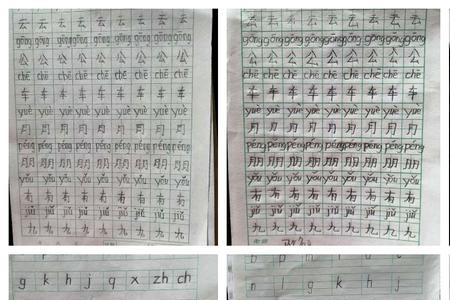 云 云 云 云 云 云 云
gōng gōng gōng gōng gōng gōng gōng
公 公 公 公 公 公 公
chē chē chē chē chē chē chē
车 车 车 车 车 车 车
yuè yuè yuè yuè yuè yuè yuè
月 月 月 月 月 月 月
péng péng péng péng péng péng péng
朋 朋 朋 朋 朋 朋 朋
yǒu yǒu yǒu yǒu yǒu yǒu yǒu
有 有 有 有 有 有 有
jiǔ jiǔ jiǔ jiǔ jiǔ jiǔ jiǔ
九 九 九 九 九 九 九
云 云 云 云 云 云 云 云
gōng gōng gōng gōng gōng gōng gōng gōng
公 公 公 公 公 公 公 公
chē chē chē chē chē chē chē chē
车 车 车 车 车 车 车 车
yuè yuè yuè yuè yuè yuè yuè yuè
月 月 月 月 月 月 月 月
péng péng péng péng péng péng péng péng
朋 朋 朋 朋 朋 朋 朋 朋
yǒu yǒu yǒu yǒu yǒu yǒu yǒu yǒu
有 有 有 有 有 有 有 有
jiǔ jiǔ jiǔ jiǔ jiǔ jiǔ jiǔ jiǔ
九 九 九 九 九 九 九 九
g k h j q x zh ch
n l g k h j